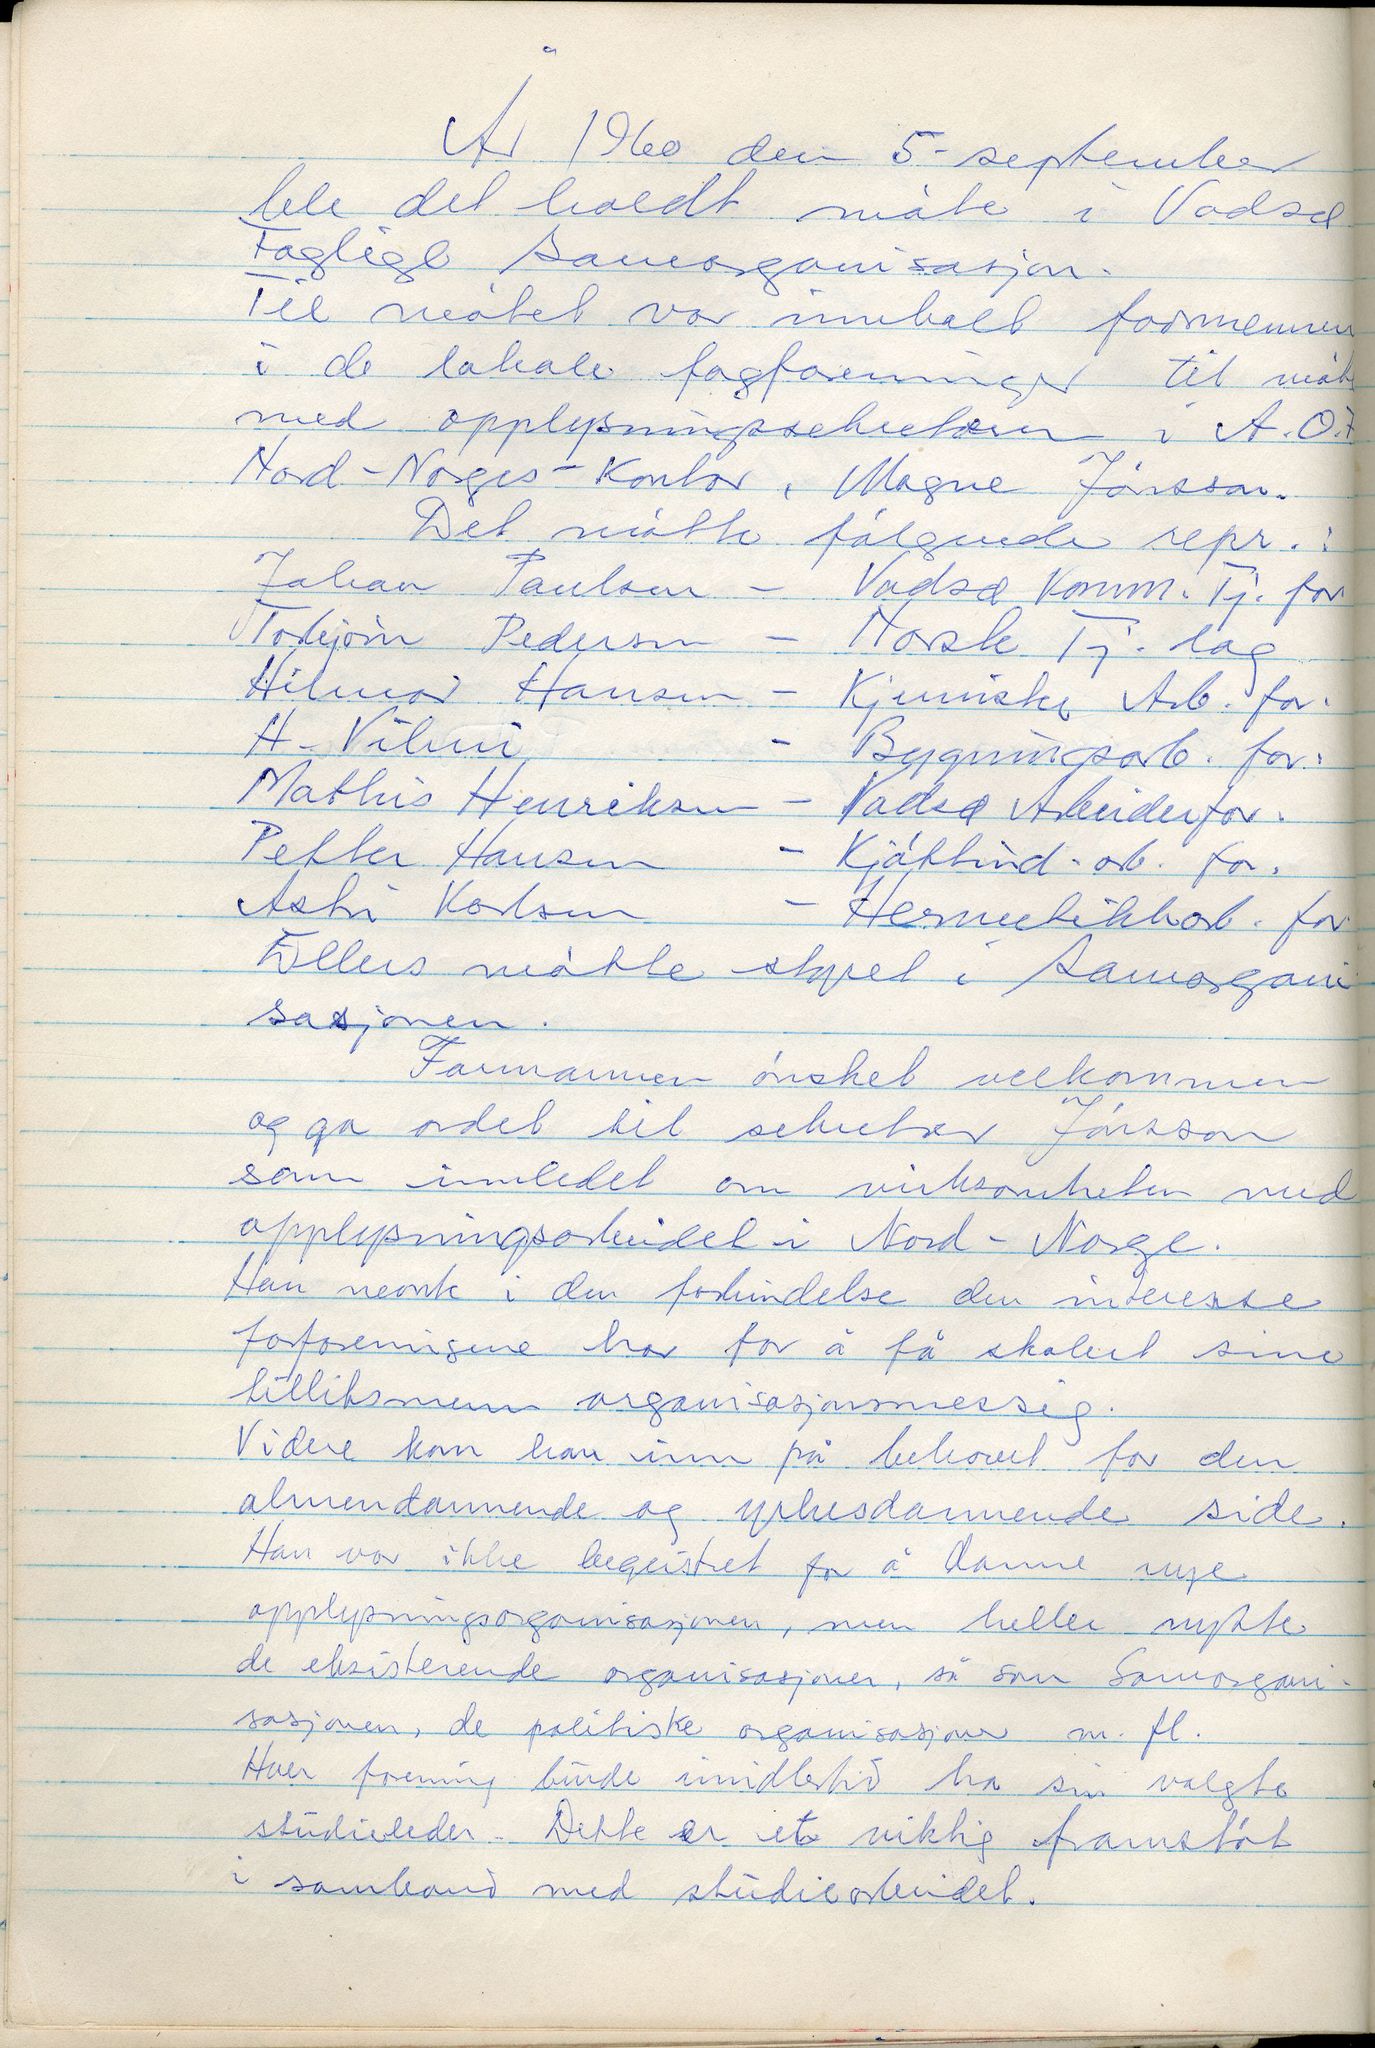 År 1960 den 5- september
ble det holdt møte i Vadsø
Faglige Samorganisasjon.
Til møtet var innkalt formennen
i de lokale fagforeninger til møte
med opplysningssekretæren i A.O.F
Nord-Norges-Kontor, Magne Jónsson.
Det møtte følgende repr.:
Johan Paulsen - Vadsø Komm. Tj. for
Torbjørn Pedersen - Norsk Tj. lag
Hilmar Hansen - Kjemiske Arb. for.
H. - Bygningsarb. for.
Mathis Henriksen - Vadsø Arbeiderfor.
Petter Hansen - Kjøttind. arb. for.
Karlsen - Hermetikkarb. for
Ellers møtte styret i Samorgani
sasjonen.
Formannen ønsket velkommen
og ga ordet til sekretær Jónsson
som innledet om virksomheten med
opplysningsarbeidet i Nord-Norge.
Han nevnte i den forbindelse den interesse
forforeningene har for å få skolert sine
tillitsmenn organisasjonsmessig.
Videre kom han inn på behovet for den
almendannende og yrkesdannende side.
Han var ikke begeistret for å danne nye
opplysningsorganisasjoner, men heller nytte
de eksisterende organisasjoner, så som Samorgani-
sasjonen, de politiske organisasjoner m. fl.
Hver forening burde imidlertid ha sin valgte
studieleder. Dette er et viktig framstøt
i samband med studiearbeidet.